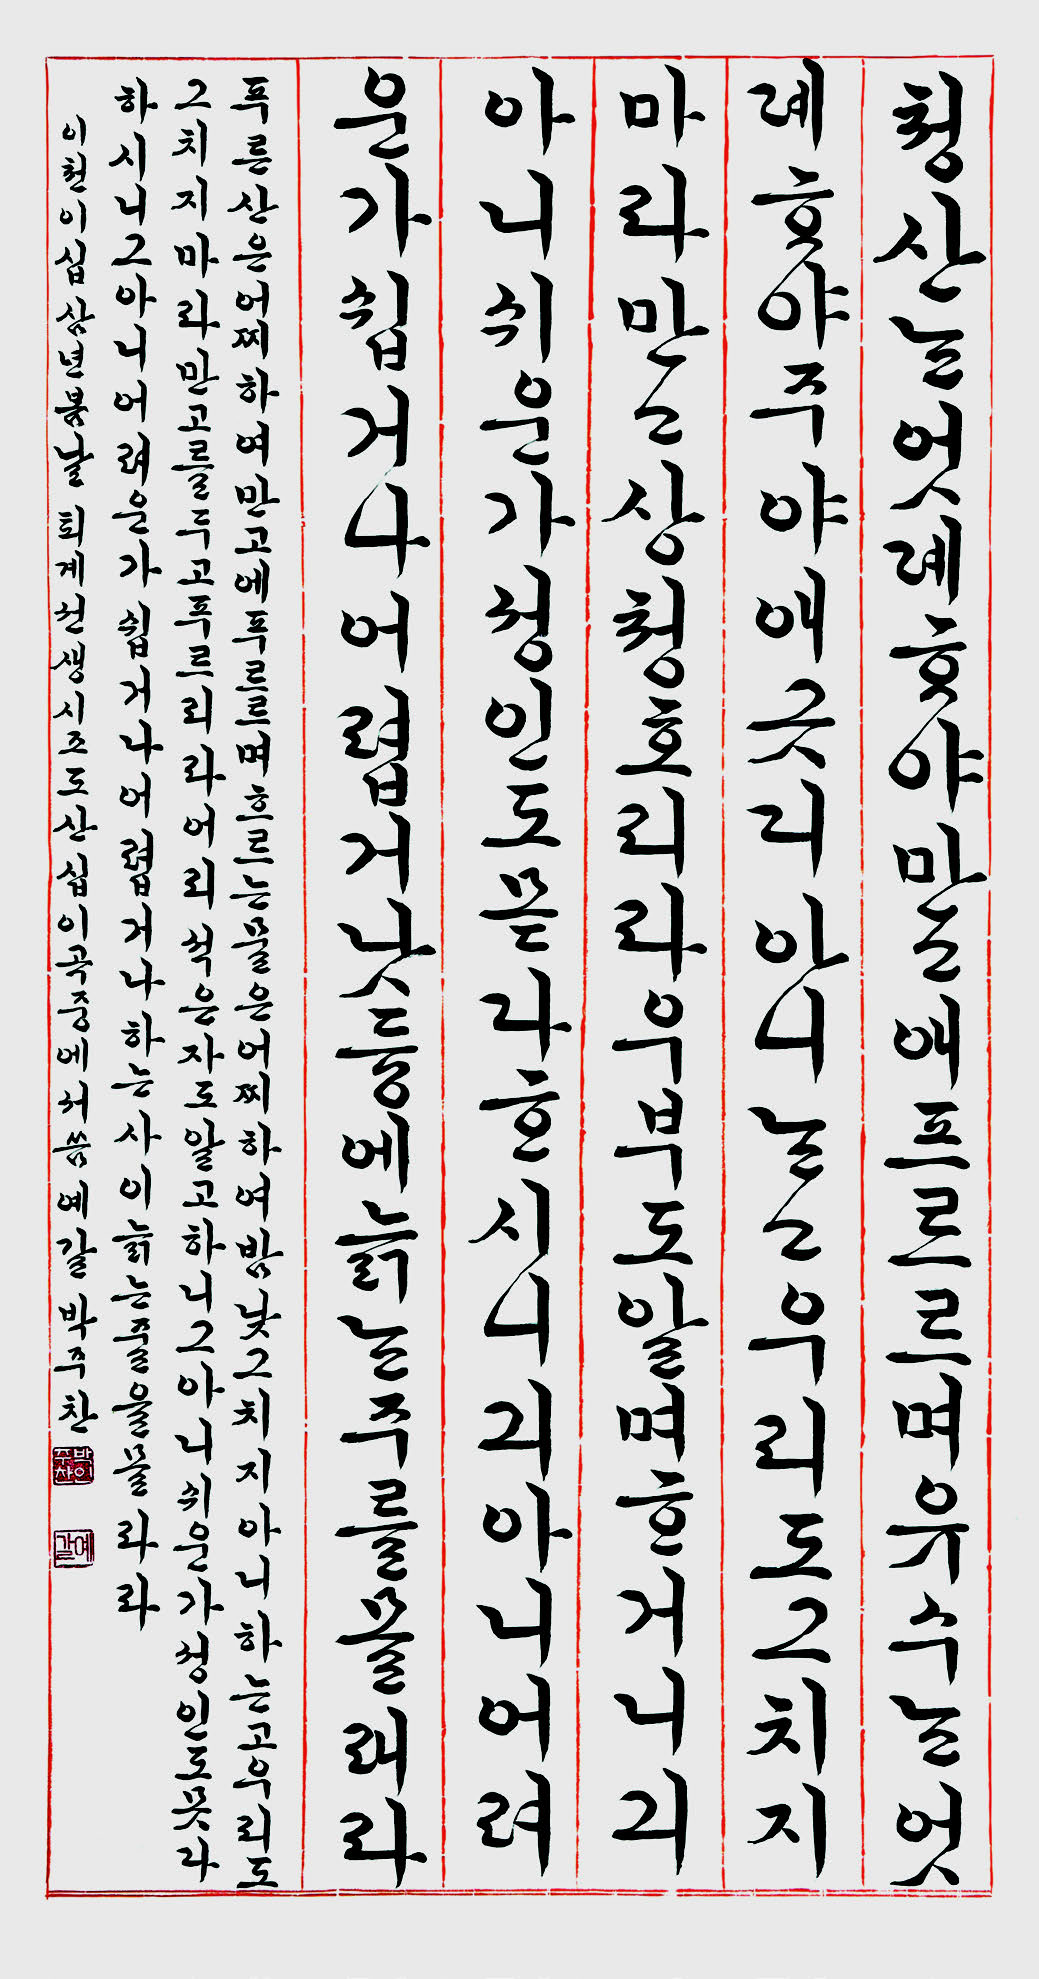 청산ᄂᆞᆫ엇뎨ᄒᆞ야만고애프르르며유수ᄂᆞᆫ엇
뎨ᄒᆞ야주야애긋디아니ᄂᆞᆫ고우리도그치지
마라만고상청호리라우부도알며ᄒᆞ거니긔
아니쉬운가셩인도몯다ᄒᆞ시니긔아니어려
운가쉽거나어렵거낫듕에늙ᄂᆞᆫ주를몰래라
푸른산은어찌하여만고에푸르르며흐르는물은어찌하여밤낮그치지아니하는고우리도
그치지마라만고를두고푸르리라어리석은자도알고하니그아니쉬운가성인도못다
하시니그아니어려운가쉽거나어렵거나하는사이늙는줄을몰라라
이천이십삼년봄날 퇴계선생시조도산십이곡중에서씀예갈박주찬
박인주찬
예갈